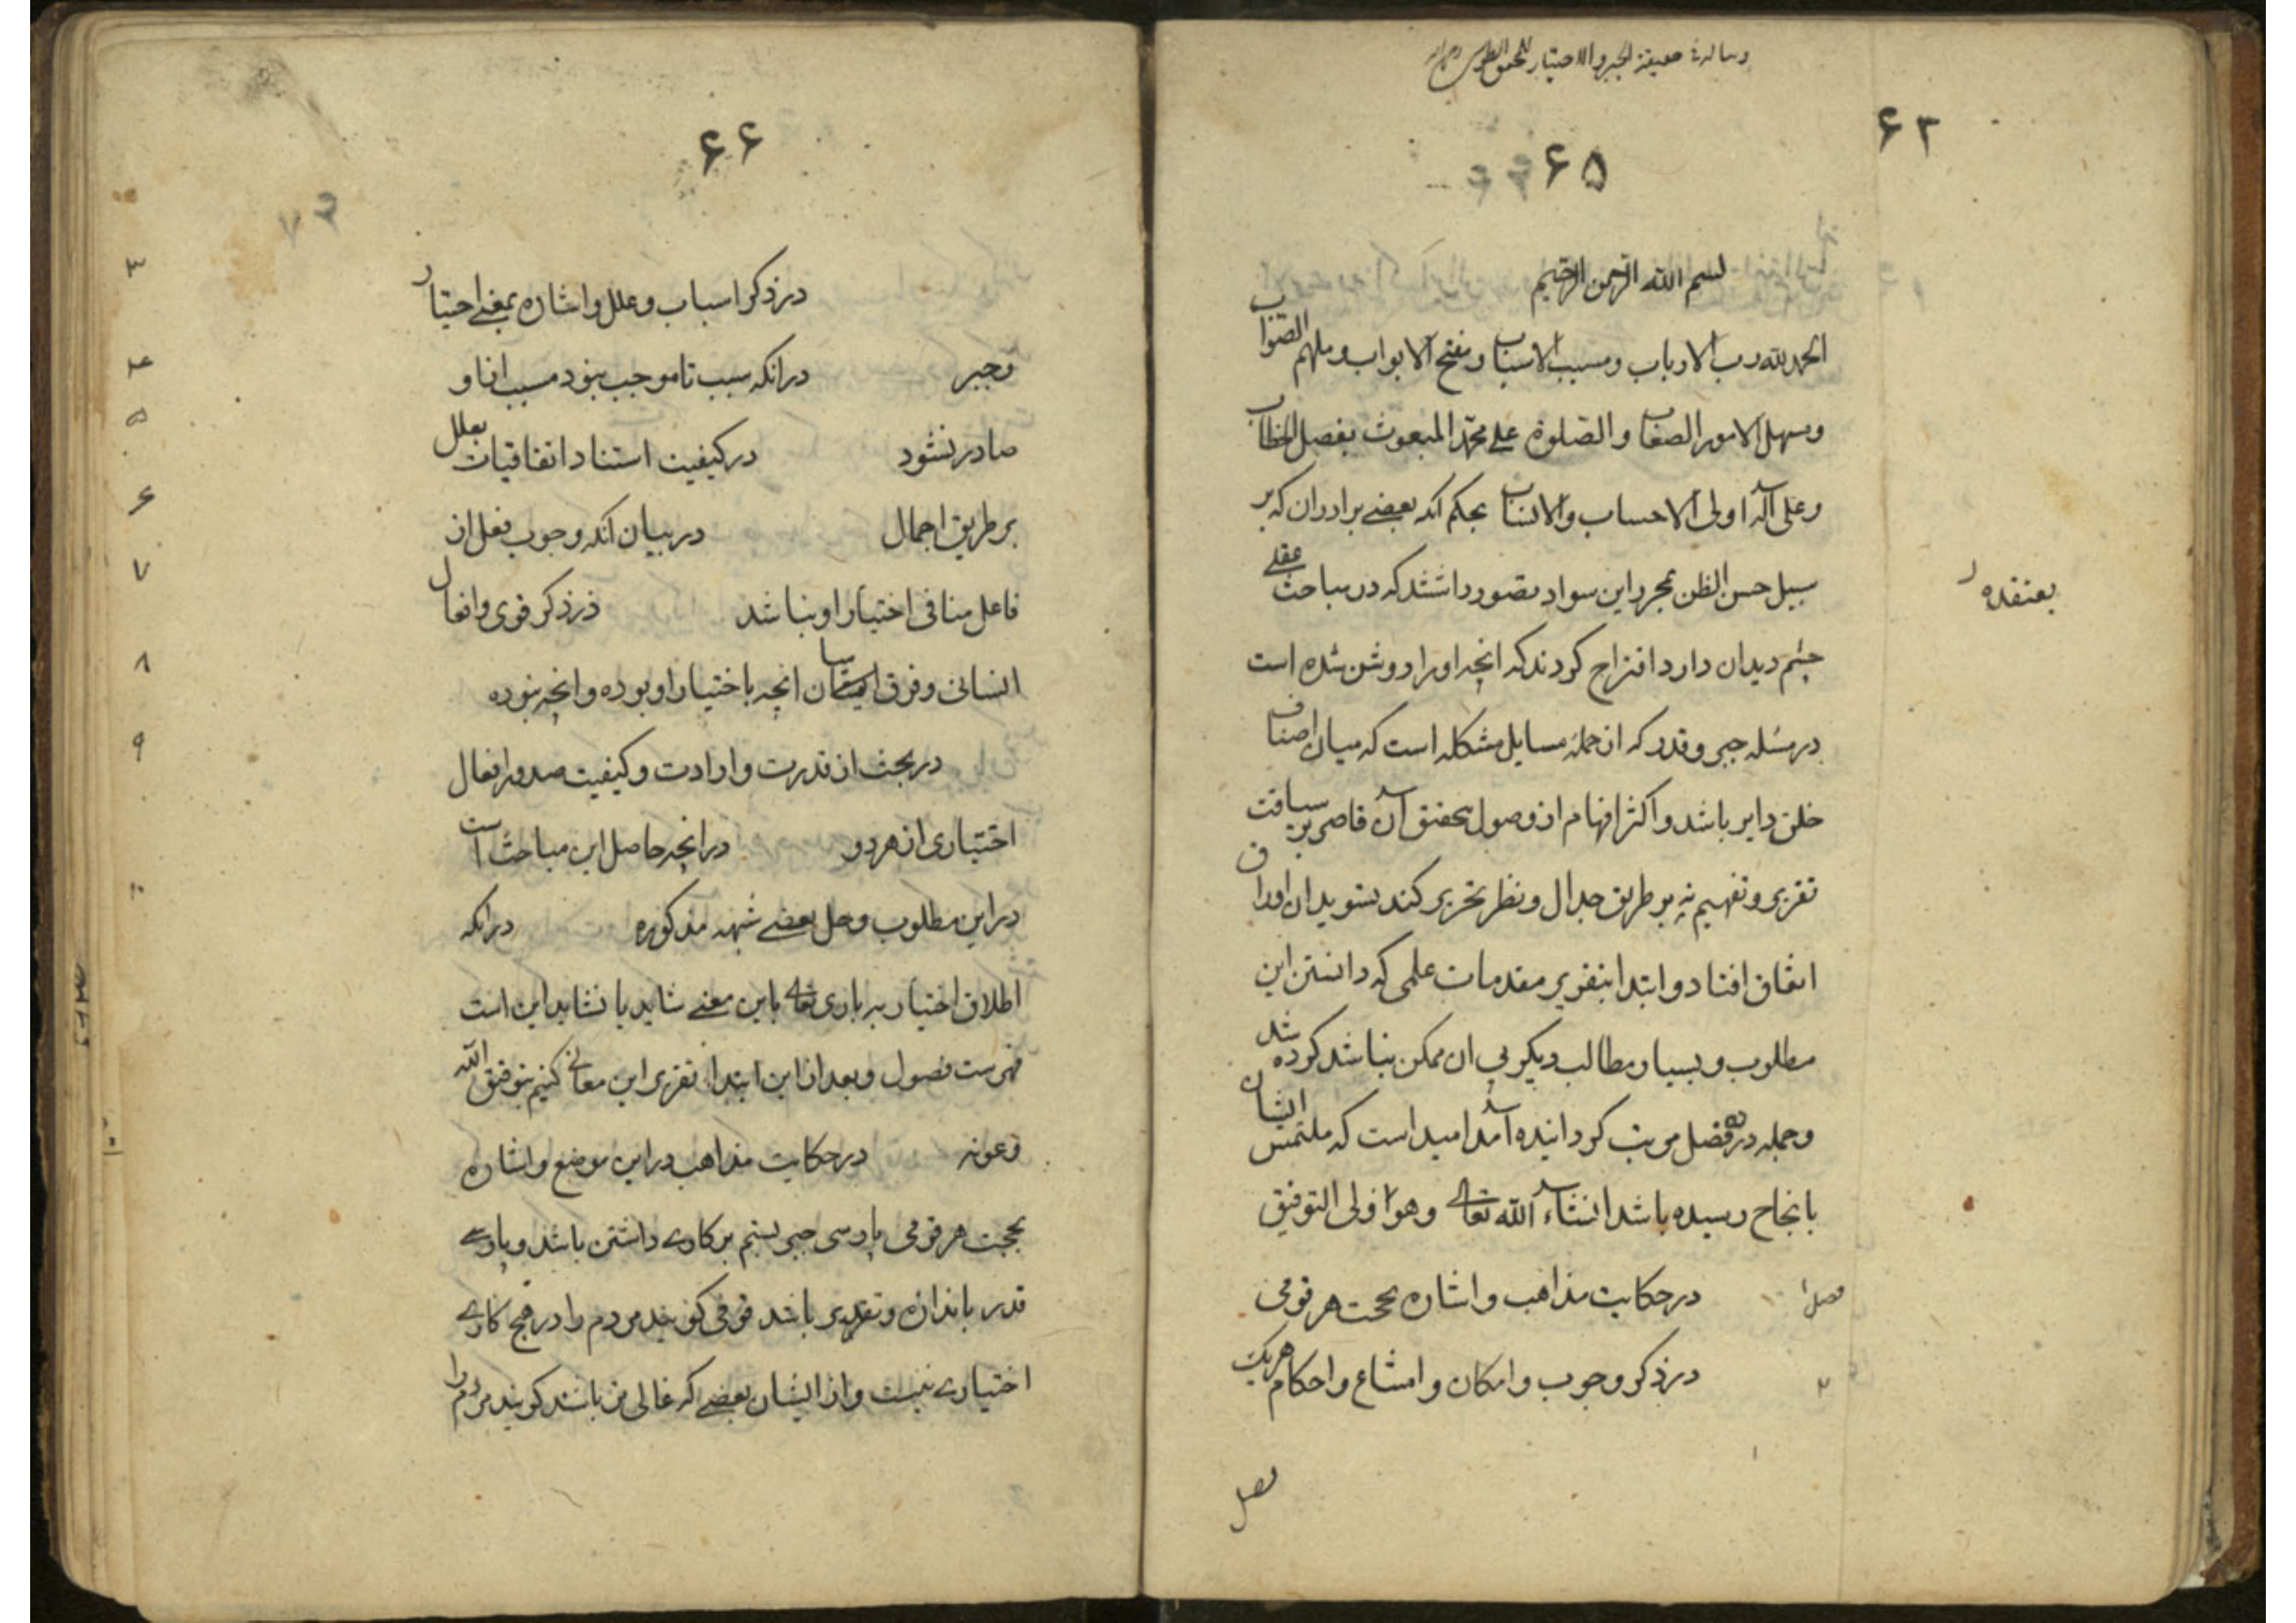 رسالة حقيقة الجبر والاختيار للمحقق الطوسي
۶۲
۶۵
بسم الله الرحمن الرحیم
الحمد لله رب الارباب ومسبب الاسباب ومفتح الابواب وملهم الصواب
ومسهل الامور الصعاب والصلوة علی محمد المبعوث بفصل الخطاب
وعلی آله اولی الاحساب والانساب بحکم آنکه بعضی برادران که بر
سبیل حسن الظن بمحرر این سواد تصور داشتند که در مباحث عقلی
چشم دیدان دارد اقتراح کردند که انچه او را روشن شده است
در مسئله جبر و قدر که از جمله مسایل مشکله است که میان اصناف
خلق دایر باشد و اکثر افهام از وصول بتحقیق آن قاصر بر سیاقت
تقریر و تفهیم نه بر طریق جدال و نظر تحریر کند بتسوید این اوراق
اتفاق افتاد و ابتدا بتقریر مقدمات علمی که دانستن این
مطلوب و بسیار مطالب دیگر بی ان ممکن نباشد کرده شد
و جمله در ده فصل مرتب گردانیده آمد امید است که ملتمس ایشان
بانجاح رسیده باشد انشاء الله تعالی وهو اولی التوفیق
فصل ۱ در حکایت مذاهب و اشاره بحجت هر قومی
۲ در ذکر وجوب و امکان و امتناع و احکام هریک
فصل
۶۶
۳ در ذکر اسباب و علل و اشاره بمعنی اختیار
و جبر ۴ در انکه سبب تا موجب نبود مسبب از او
صادر نشود ۵ در کیفیت استناد اتفاقیات بعلل
بر طریق اجمال ۶ در بیان آنکه وجوب فعل از
فاعل منافی اختیار او نباشد ۷ در ذکر قوی و افعال
انسانی و فرق میان انچه باختیار او بوده و انچه نبوده
۸ در بحث از قدرت و ارادت و کیفیت صدور افعال
اختیاری از هر دو ۹ در انچه حاصل این مباحث است
در این مطلوب و حل بعضی شبهه مذکوره ۱۰ در انکه
اطلاق اختیار بر باری تعالی باین معنی شاید یا نشاید این است
فهرست فصول و بعد از این ابتدا بتقریر این معانی کنیم بتوفیق الله
وعونه در حکایت مذاهب در این موضع و اشاره
بحجت هر قومی پارسی جبر بستم بر کاری داشتن باشد و پارسی
قدر باندازه و تقدیر باشد قومی گویند مردم را در هیچ کاری
اختیاری نیست و از ایشان بعضی که غالی تر باشند گویند مردم را